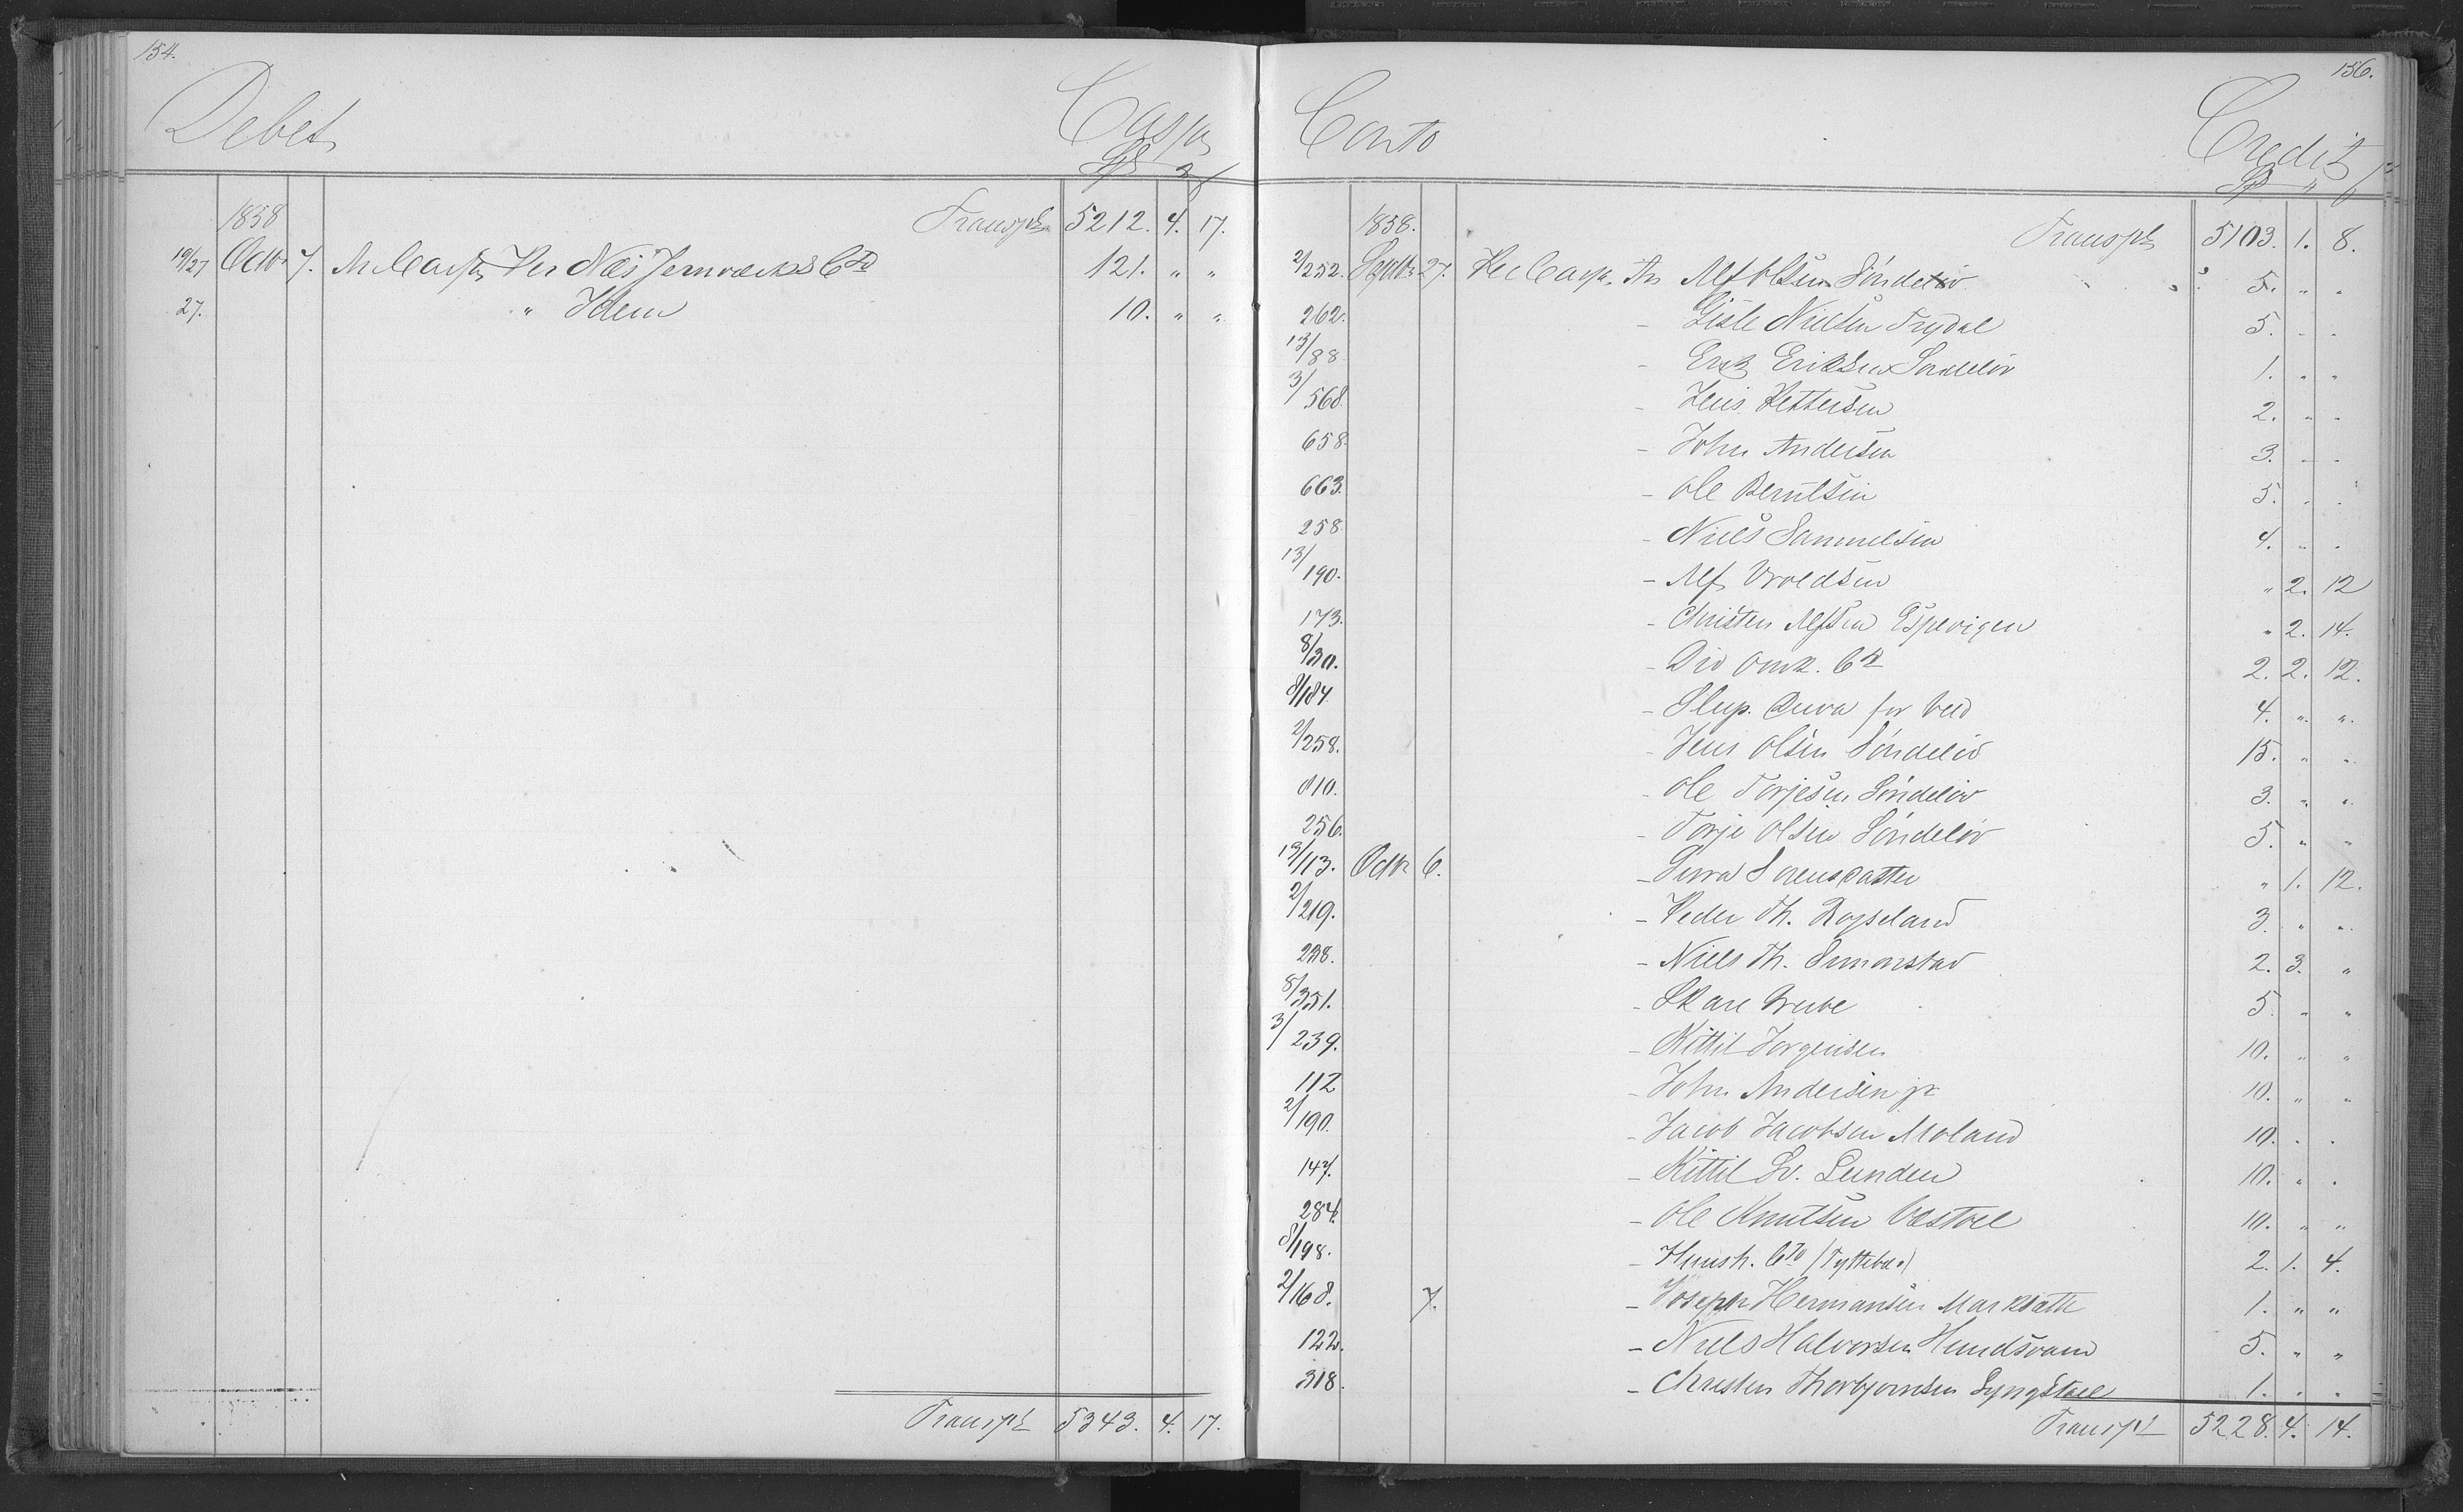 154.
Debet
Cassa
Sp
1858
Transpt 5212. 4. 17.
10/27 Octbr 7. An Cassa Per Næs Jernværks Cto 121. " "
27. " Idem 10. " "
Transpt 5343. 4. 17.
156.
Conto
Credit
Sp
1858.
Transpt 5103. 1. 8.
2/252. Septbr 27. Per Cassa An Alf Olsen Søndeløv 5. " "
262. - Gisle Nielsen Trydal 5. " "
13/88. - Erik Eriksen Søndeløv 1. " "
3/568. - Jens Pettersen 2. " "
658. - John Andersen 3. " "
663. - Ole Berulsen 5. " "
258. - Niels Samuelsen 4. " "
13/190. - Alf Vroldsen " 2. 12
173. - Christen Alfsen Espevigen " 2. 14.
8/30. - Div Omk. Cto 2. 2. 12.
8/184. - Slup. for Ved 4. " "
2/258. - Jens Olsen Søndeløv 15. " "
810. - Ole Torjesen Søndeløv 3. " "
256. - Torje Olsen Søndeløv 5. " "
13/113. Octbr 6. - Sørensdatter " 1. 12.
2/219. - Peder Th. Røyseland 3. " "
238. - Niels Th. Simonstad 2. 3. "
8/351. - Skare Grube 5. " "
3/239. - Kittil Jørgensen 10. " "
112 - John Andersen jr 10. " "
2/190. - Jacob Jacobsen Moland 10. " "
147. - Kittil Sv. Lunden 10. " "
284. - Ole Knutsen Vestøl 10. " "
8/198. - Huush. Cto (Tyttebær) 2. 1. 4.
2/168. 7. - Joseph Hermansen Marksæth 1. " "
122. - Niels Halvorsen Hundsvand 5. " "
318. - Christen Thorbjørnsen Lyngstøel 1. " "
Transpt 5228. 4. 14.